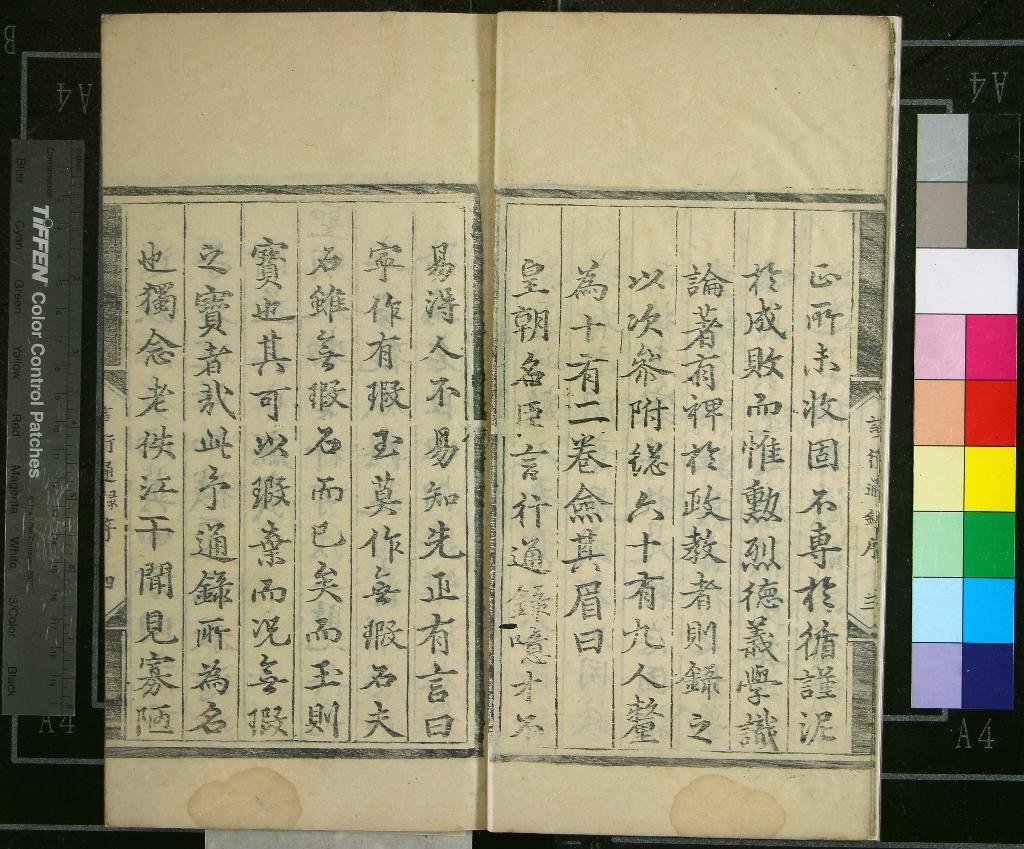 正所未收固不専於循謹泥
於成敗而惟勲烈德義學識
論著有裨於政教者則録之
以次叅附総六十有九人釐
為十有二卷僉其眉曰
皇朝名臣言行通錄噫才不
易淂人不易知先正有言曰
寜作有瑕玉莫作無瑕石夫
石雖無瑕石而已矣而玉則
寳也其可以瑕棄而况無瑕
之寳者哉此予通錄所為名
也獨念老佚江干聞見寡陋
言行通錄序 三
言行通錄序 四
TIFFEN Color Control Patches
Blue Cyan Green Yellow Red Magenta White 3/Color Black
Centimetres
A4
A4
A4
A4
B